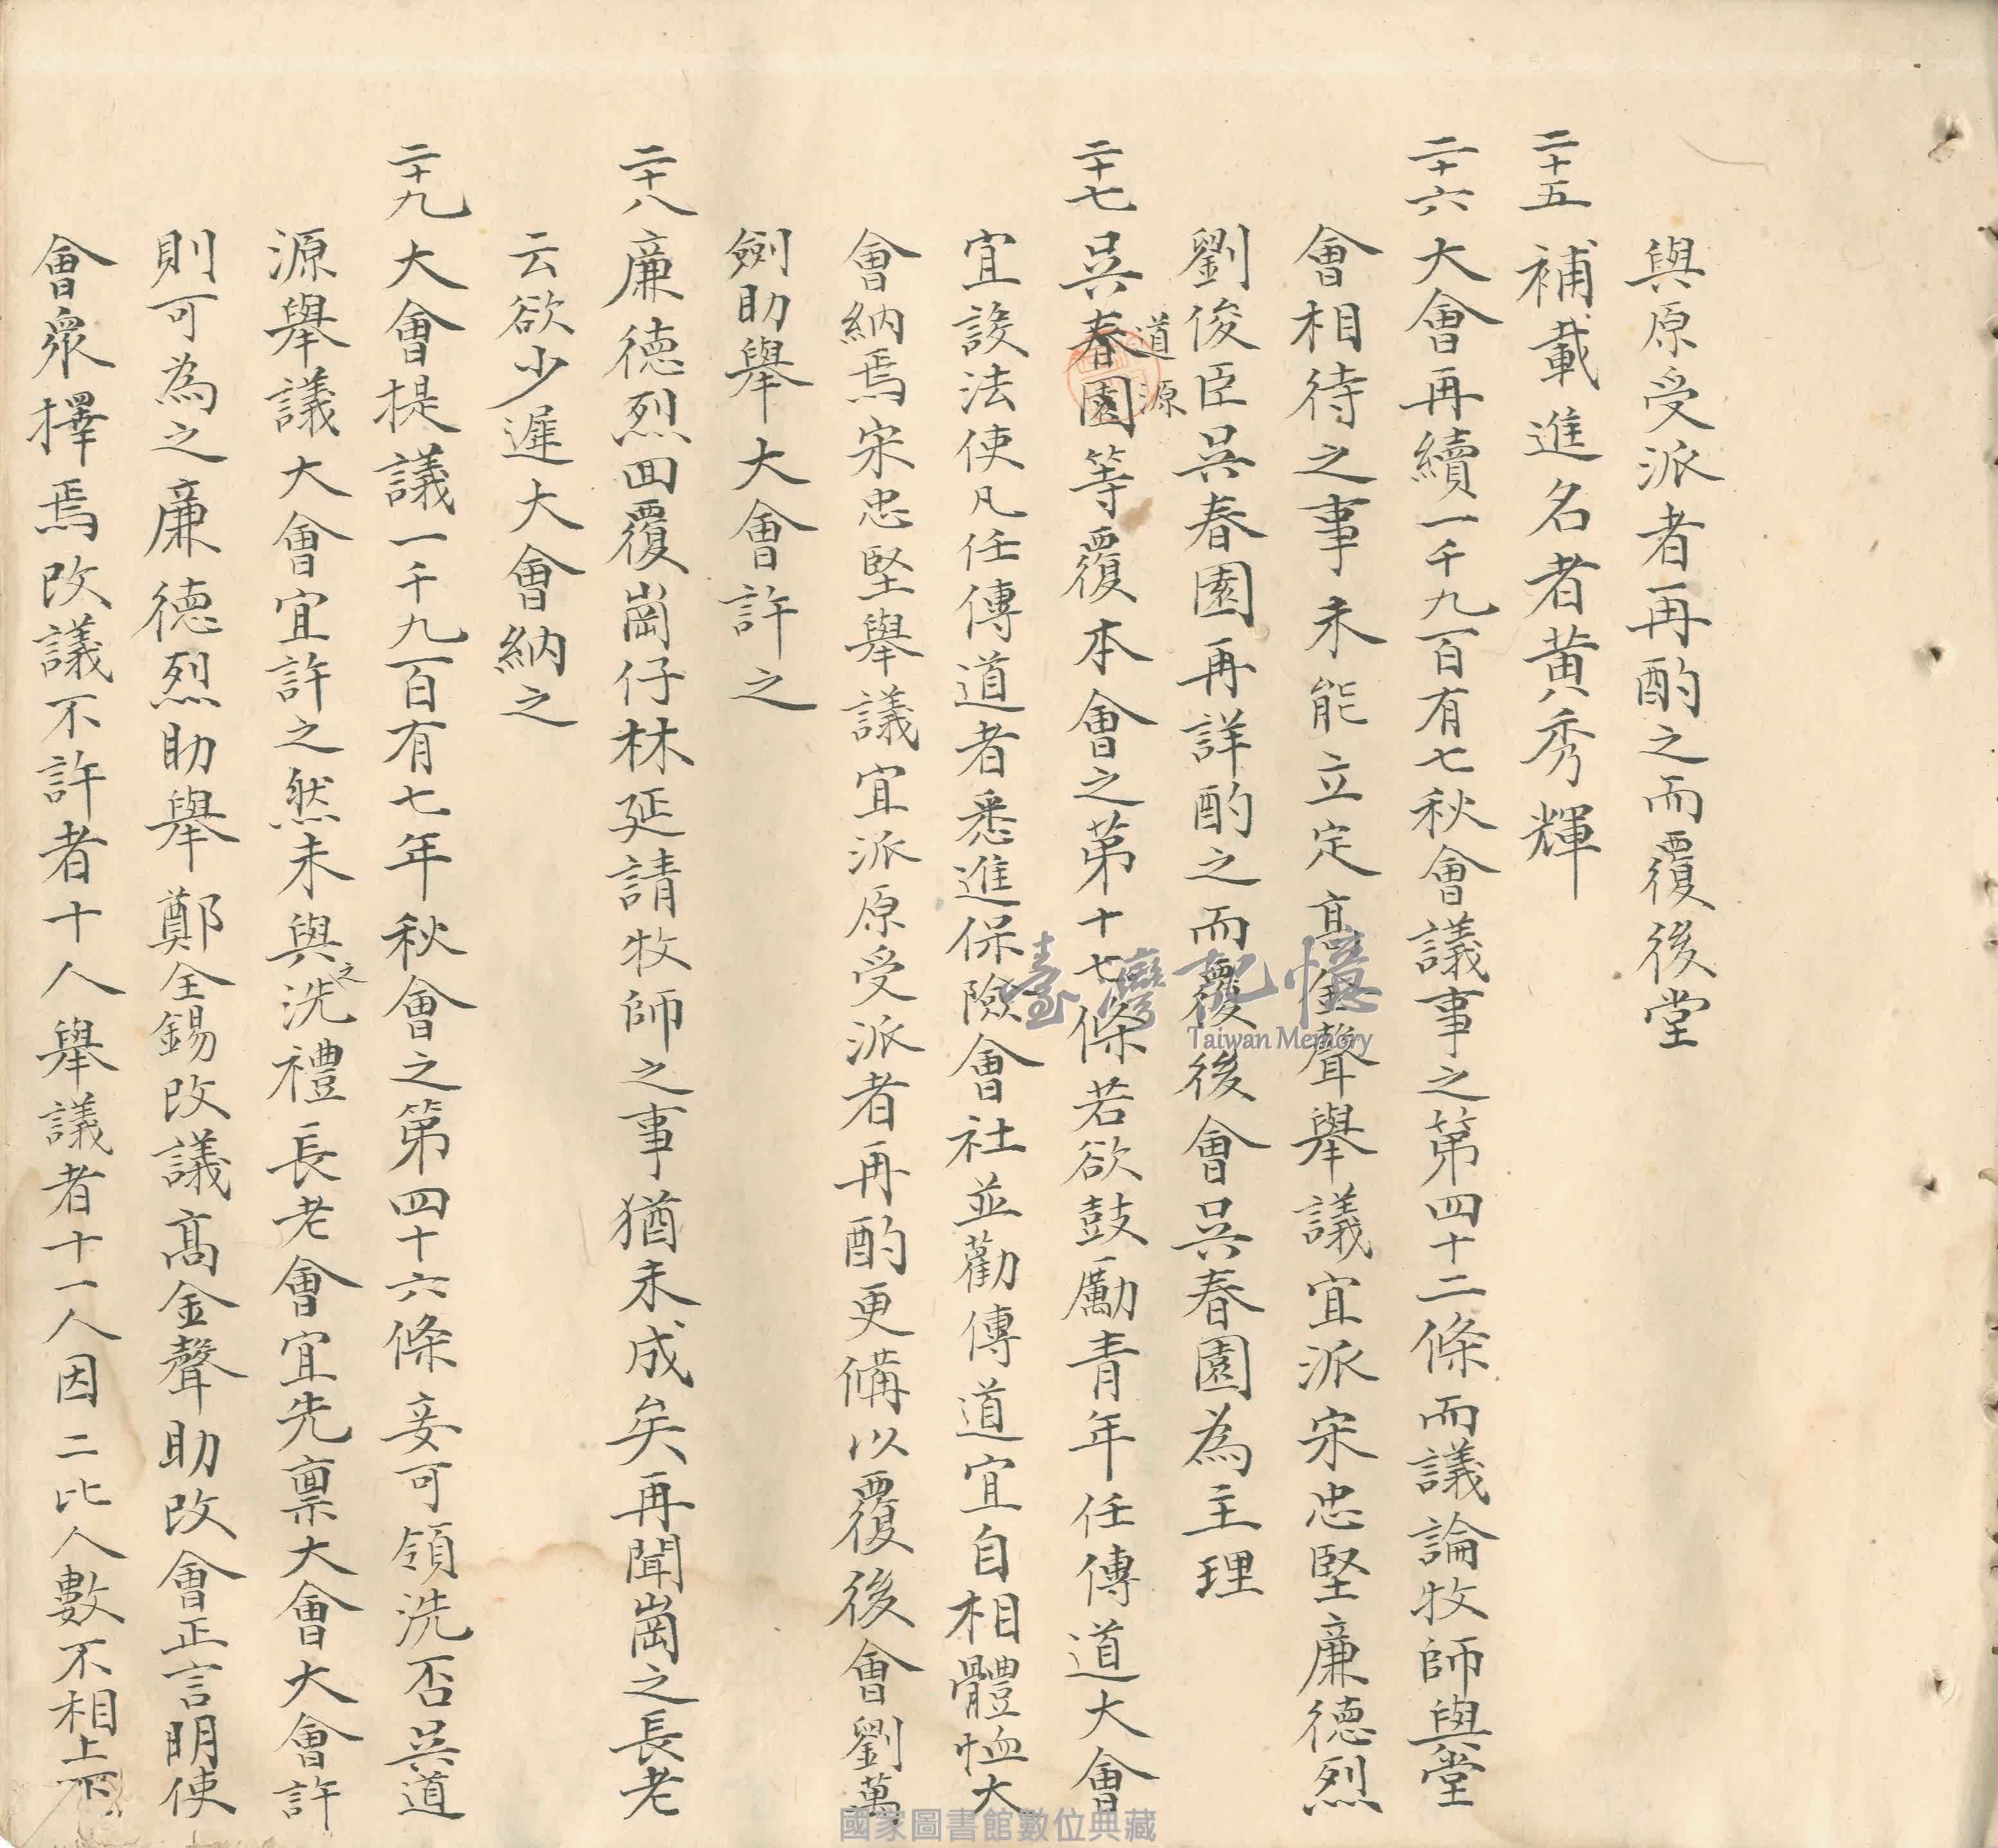 與原受派者再酌之而覆後堂
二十五 補載進名者黃秀輝
二十六 大會再續一千九百有七秋會議事之第四十二條而議論牧師與堂
會相待之事未能立定高金聲舉議宜派宋忠堅廉德烈
劉俊臣吳春園再詳酌之而覆後會吳春園為主理
道源
二十七 吳春園等覆本會之第十七條若欲鼓勵青年任傳道大會
宜設法使凡任傳道者悉進保險會社並勸傳道宜自相體恤大
會納焉宋忠堅舉議宜派原受派者再酌更備以覆後會劉萬
劍助舉大會許之
二十八 廉德烈回覆崗仔林延請牧師之事猶未成矣再聞崗之長老
云欲少遲大會納之
二十九 大會提議一千九百有七年秋會之第四十六條妾可領洗否吳道
源舉議大會宜許之然未與之洗禮長老會宜先禀大會大會許
則可為之廉德烈助舉鄭全錫改議高金聲助改會正言明使
會衆擇焉改議不許者十人舉議者十一人因二比人數不相上下
臺灣記憶
Taiwan Memory
國家圖書館數位典藏